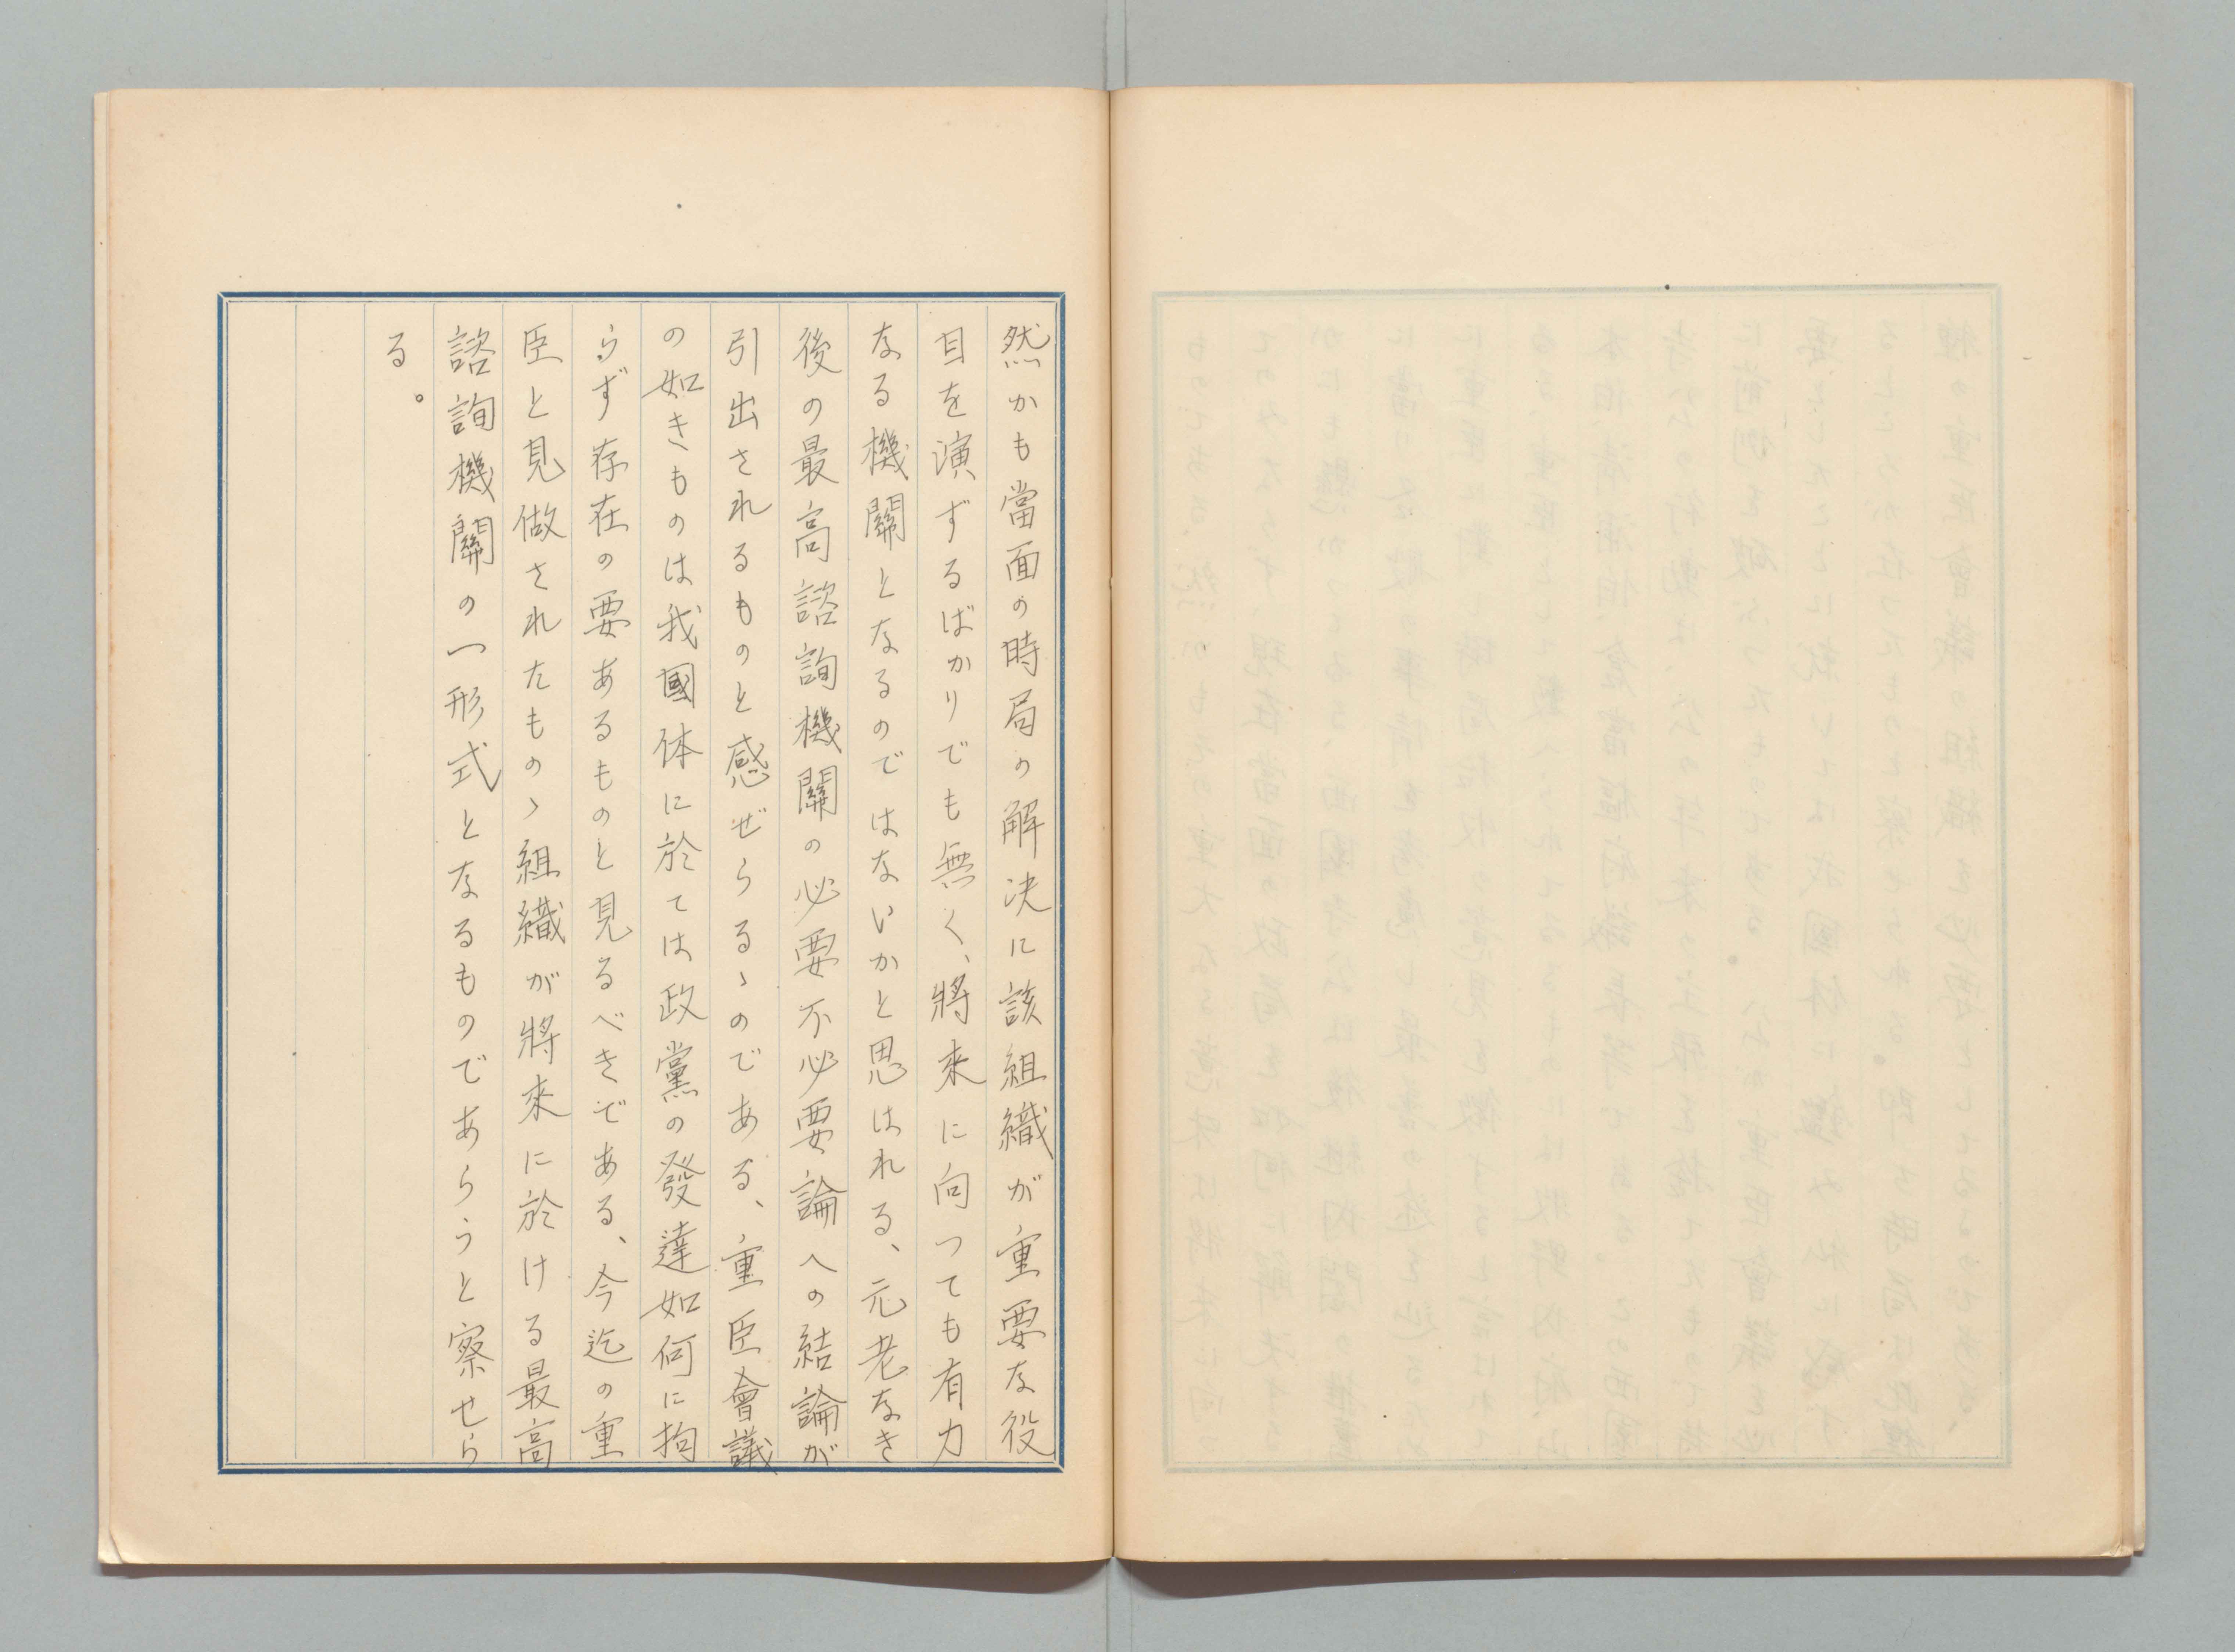 然かも當面の時局の解決に該組織が重要な役
目を演ずるばかりでも無く、將来に向つても有力
なる機關となるのではないかと思はれる、元老なき
後の最高諮詢機關の必要不必要論への結論が
引出されるものと感ぜらるゝのである、重臣會議
の如きものは我國体に於ては政黨の發達如何に拘
らず存在の要あるものと見るべきである、今迄の重
臣と見做されたものゝ組織が將來に於ける最高
諮詢機關の一形式となるものであらうと察せら
る。